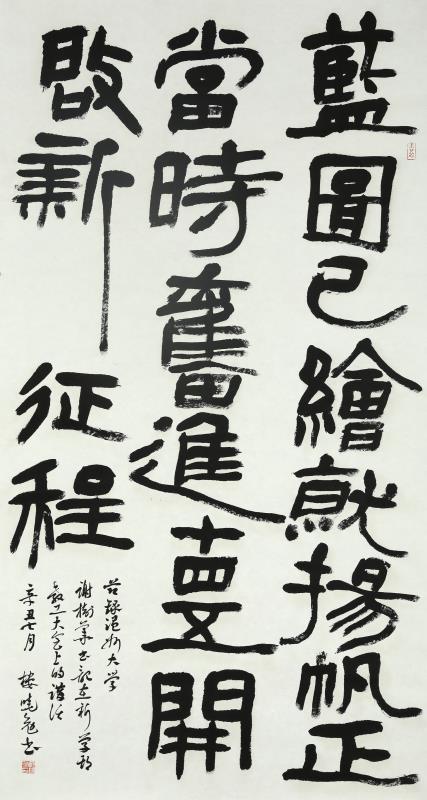 藍圖已繪就揚帆正
當時奮進十四五開
啟新征程
节録温州大学
谢树华书记在新学期
教工大会上的讲话
辛丑七月 楼晓勉书